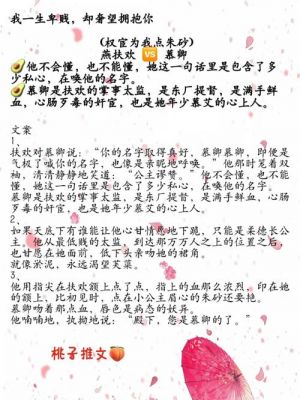 我一生卑贱，却奢望拥抱你
（权宦为我点朱砂）
燕扶欢 VS 慕卿
他不会懂，也不能懂，她这一句话里是包含了多
少私心，在唤他的名字。
慕卿是扶欢的掌事太监，是东厂提督，是满手鲜
血，心肠歹毒的奸宦，也是她年少慕艾的心上人。
文案
1、
扶欢对慕卿说：“你的名字取得真好，慕卿慕卿，即便是
气极了喊你的名字，也像是亲昵地呼唤。”他那时笼着双
袖，清清静静地笑道：“公主谬赞。”他不会懂，也不能
懂，她这一句话里是包含了多少私心，在唤他的名字。
慕卿是扶欢的掌事太监，是东厂提督，是满手鲜血，心肠
歹毒的奸宦，也是她年少慕艾的心上人。
2、
如果天底下有谁能让他心甘情愿地下跪，只能是柔德长公
主。他从最低贱的太监，到达那万万人之上的位置之后，
也甘愿在她面前，低下头亲吻她的裙角。
就像淤泥，永远渴望芙蕖。
3、
他用指尖在扶欢额上点了点，指上的血那么浓烈，印在她
的额上，比初见时，点在小公主眉心的朱砂还要艳。
慕卿吻着那点血，唇色是病态的妖异。
他喃喃地，执拗地说：“殿下，您是慕卿的了。”
桃子推文